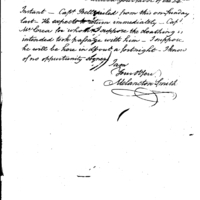 Instant – Capt. sailed from this on Sunday
last – He expects to return immediately – Capt
McCrea for whom I suppose the cloathing is
intended took passage with him – I suppose
he will be here in about a fortnight – I know
of no opportunity
I am
Melancton Smith